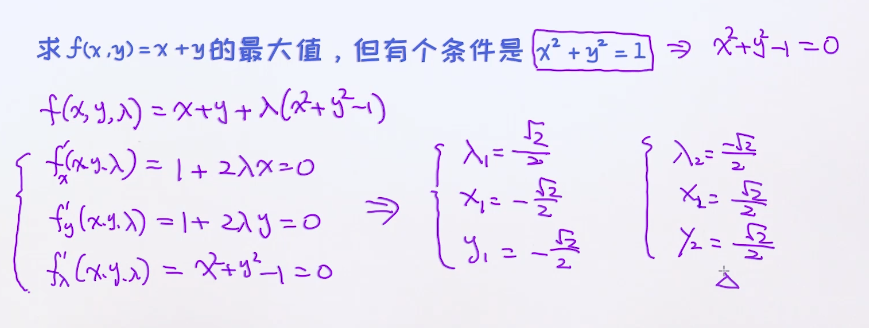 求 f(x,y)=x+y 的最大值，但有个条件是 x²+y²=1 ⇒ x²+y²-1=0
f(x,y,λ)=x+y+λ(x²+y²-1)
f'x(x.y.λ)=1+2λx=0
f'y(x.y.λ)=1+2λy=0
f'λ(x.y.λ)=x²+y²-1=0
⇒
λ₁=√2/2
x₁=-√2/2
y₁=-√2/2
λ₂=-√2/2
x₂=√2/2
y₂=√2/2
△